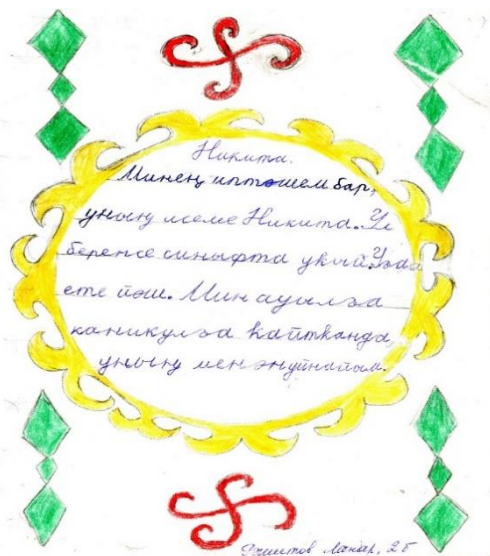 Никита.
Минең иптәшем бар,
уның исеме Никита. Ул
беренсе синыфта укый. Уға
ете йәш. Мин ауылға
каникулға кайтканда
уның менән уйнайым.
Лачар, 2 Б